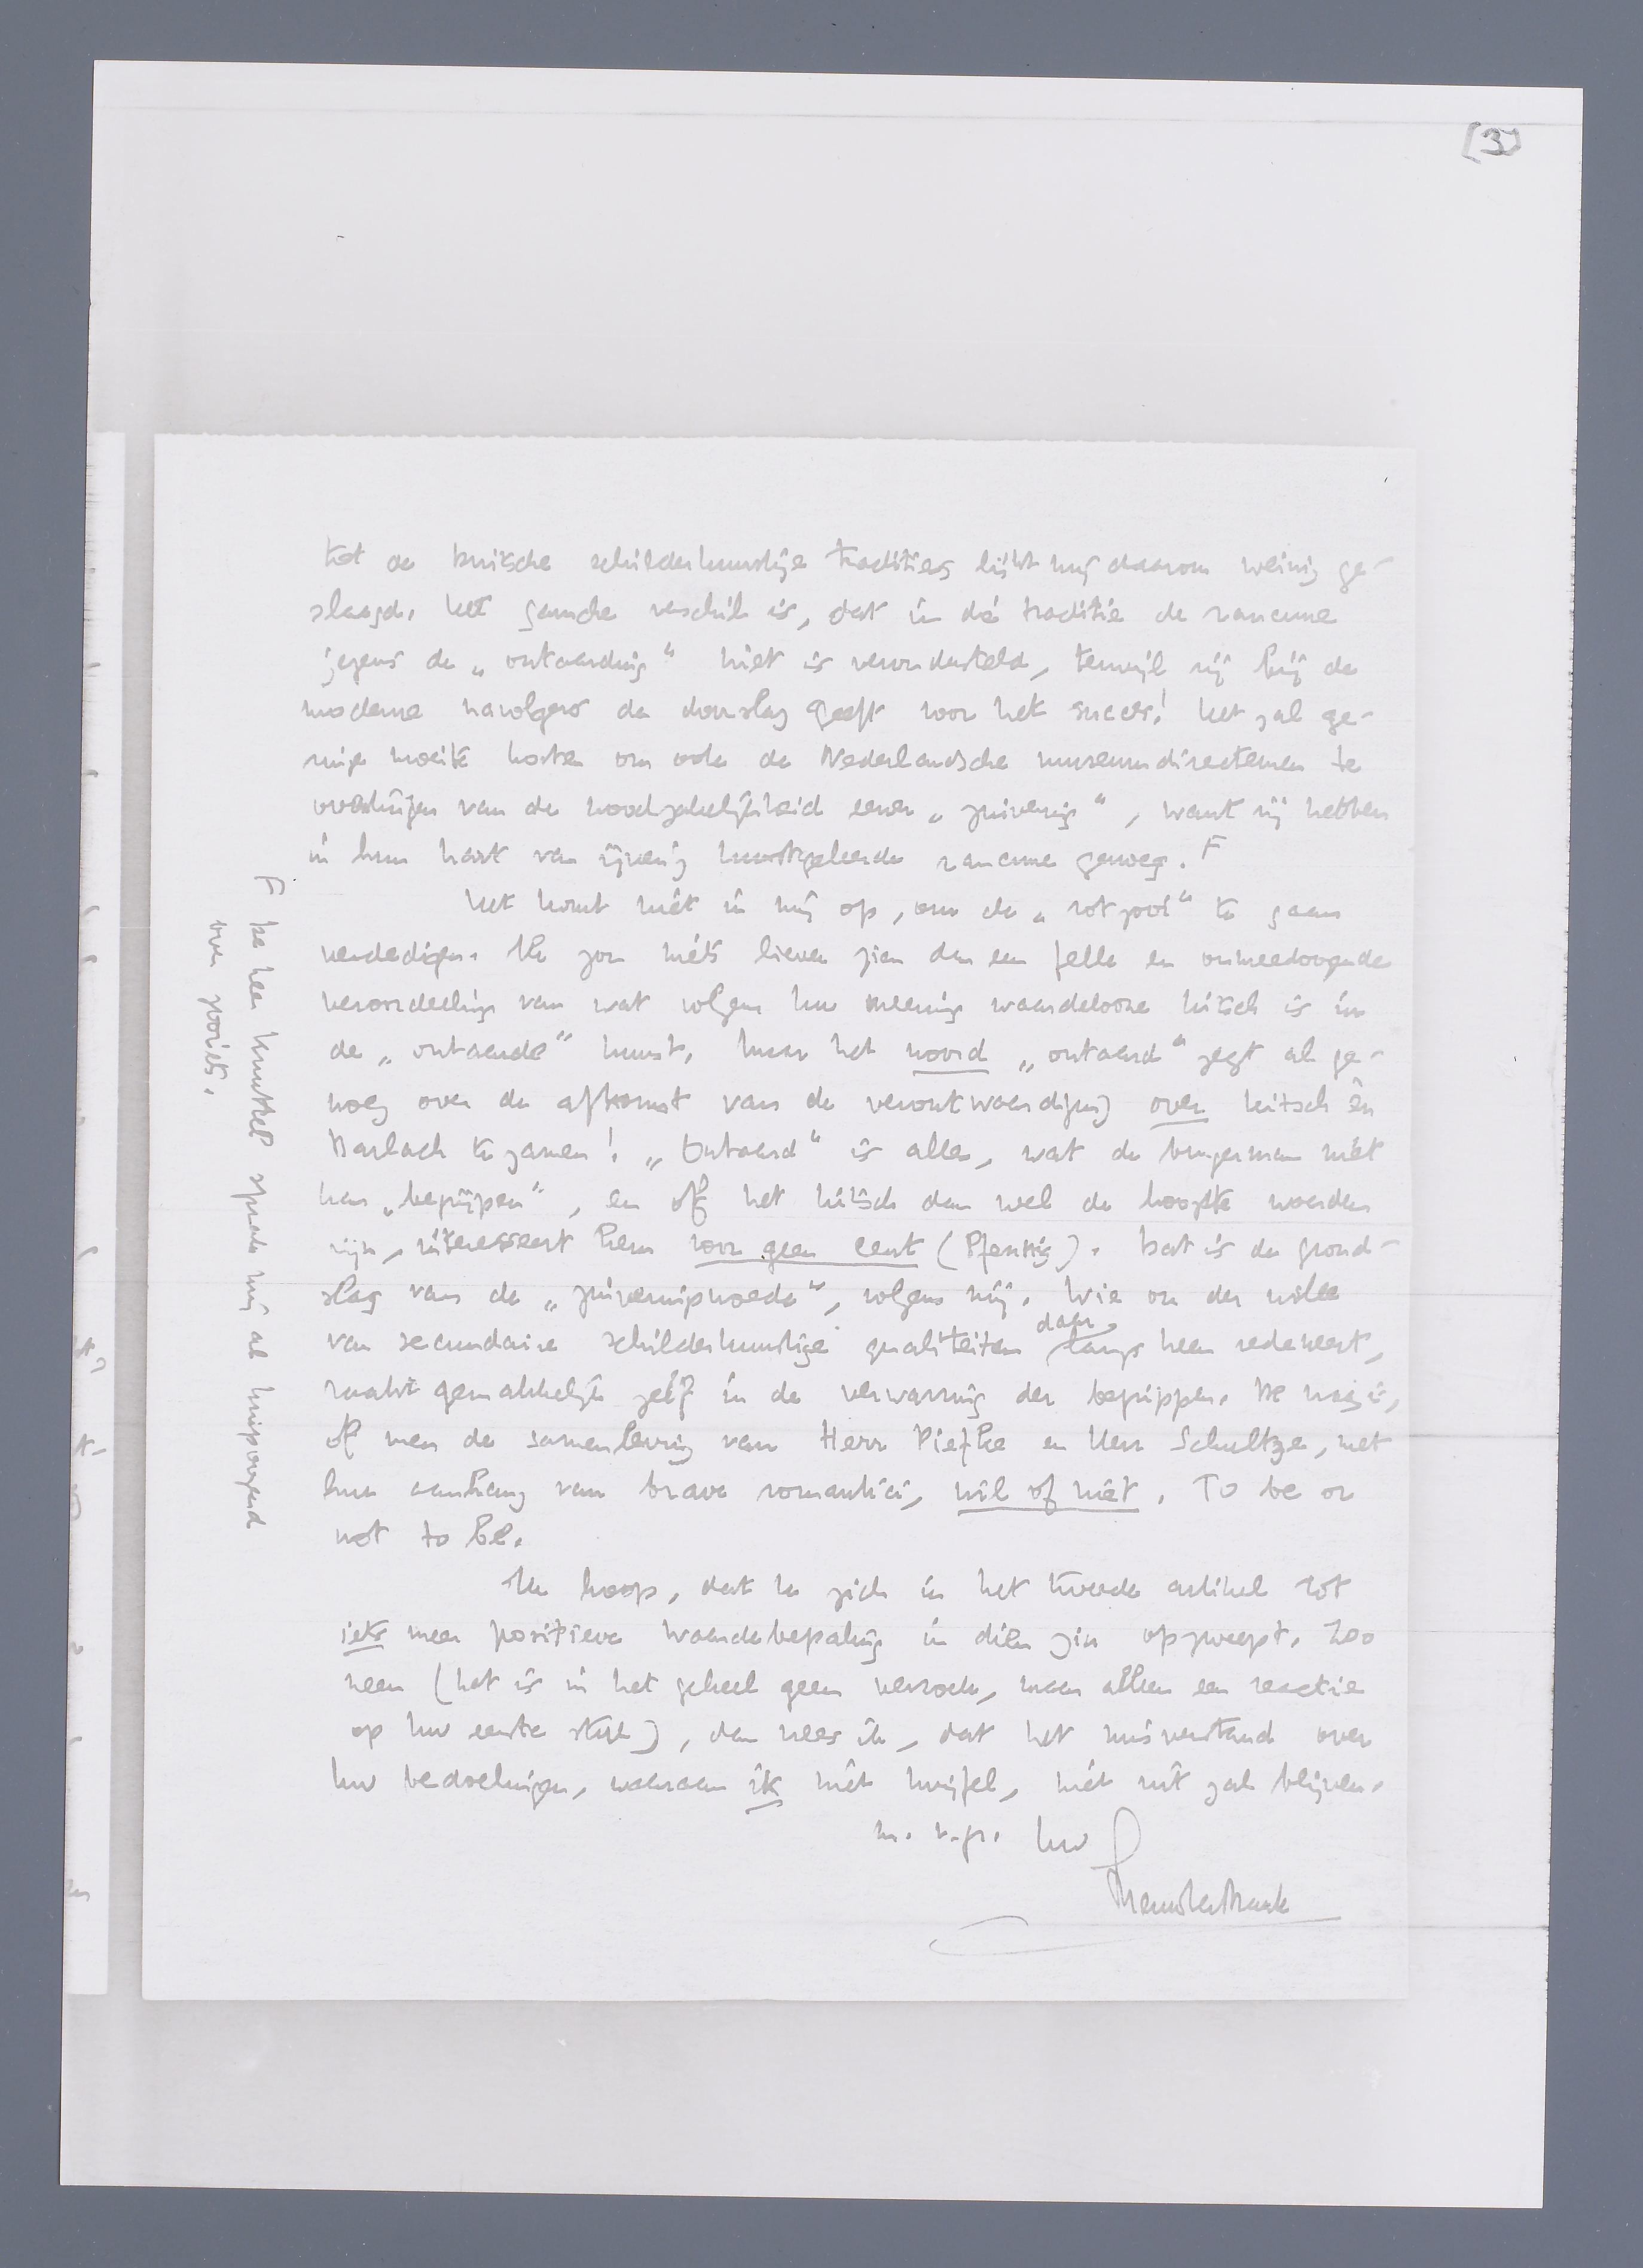 [3]
tot de Duitsche schilderkunstige tradities lijkt mij daarom weinig ge-
slaagd. Het gansche verschil is, dat in dié traditie de rancune
jegens de „ontaarding" niet is verondersteld, terwijl zij bij de
moderne navolgers de doorslag geeft voor het succes! Het zal ge-
ringe moeite kosten om ook de Nederlandsche museumdirecteuren te
overtuigen van de noodzakelijkheid eener „zuivering", want zij hebben
in hun hart van ijverig kunstgeleerde rancune genoeg. F
Het komt niet in mij op, om de „rotzooi" te gaan
verdedigen. Ik zou niets liever zien dan een felle en onmeedoogende
veroordeeling van wat volgens Uw meening waardelooze kitsch is in
de „ontaarde" kunst. Maar het woord „ontaard" zegt al ge-
noeg over de afkomst van de verontwaardiging over kitsch èn
Barlach te zamen! „Ontaard" is alles, wat de burgerman niet
kan „begrijpen", en of het kitsch dan wel de hoogste waarden
zijn, interesseert hem voor geen cent (Pfennig). Dat is de grond-
slag van de „zuiveringswoede", volgens mij. Wie om der wille
van secundaire schilderkunstige qualiteiten daar langs heen redeneert,
raakt gemakkelijk zelf in de verwarring der begrippen. De vraag is,
of men de samenleving van Herr Piefke en Herr Schultze, met
hun aanhang van brave romantici, wil of niet. To be or
not to be.
Ik hoop, dat U zich in het tweede artikel tot
iets meer positieve waardebepaling in dien zin opzweept. Zoo
neen (het is in het geheel geen verzoek, maar alleen een reactie
op Uw eerste stuk), dan vrees ik, dat het misverstand over
Uw bedoelingen, waaraan ik niet twijfel, niet uit zal blijven.
m. v. gr. Uw
Menno ter Braak
F De heer Knuttel sprak mij al knipoogend
over zooiets.